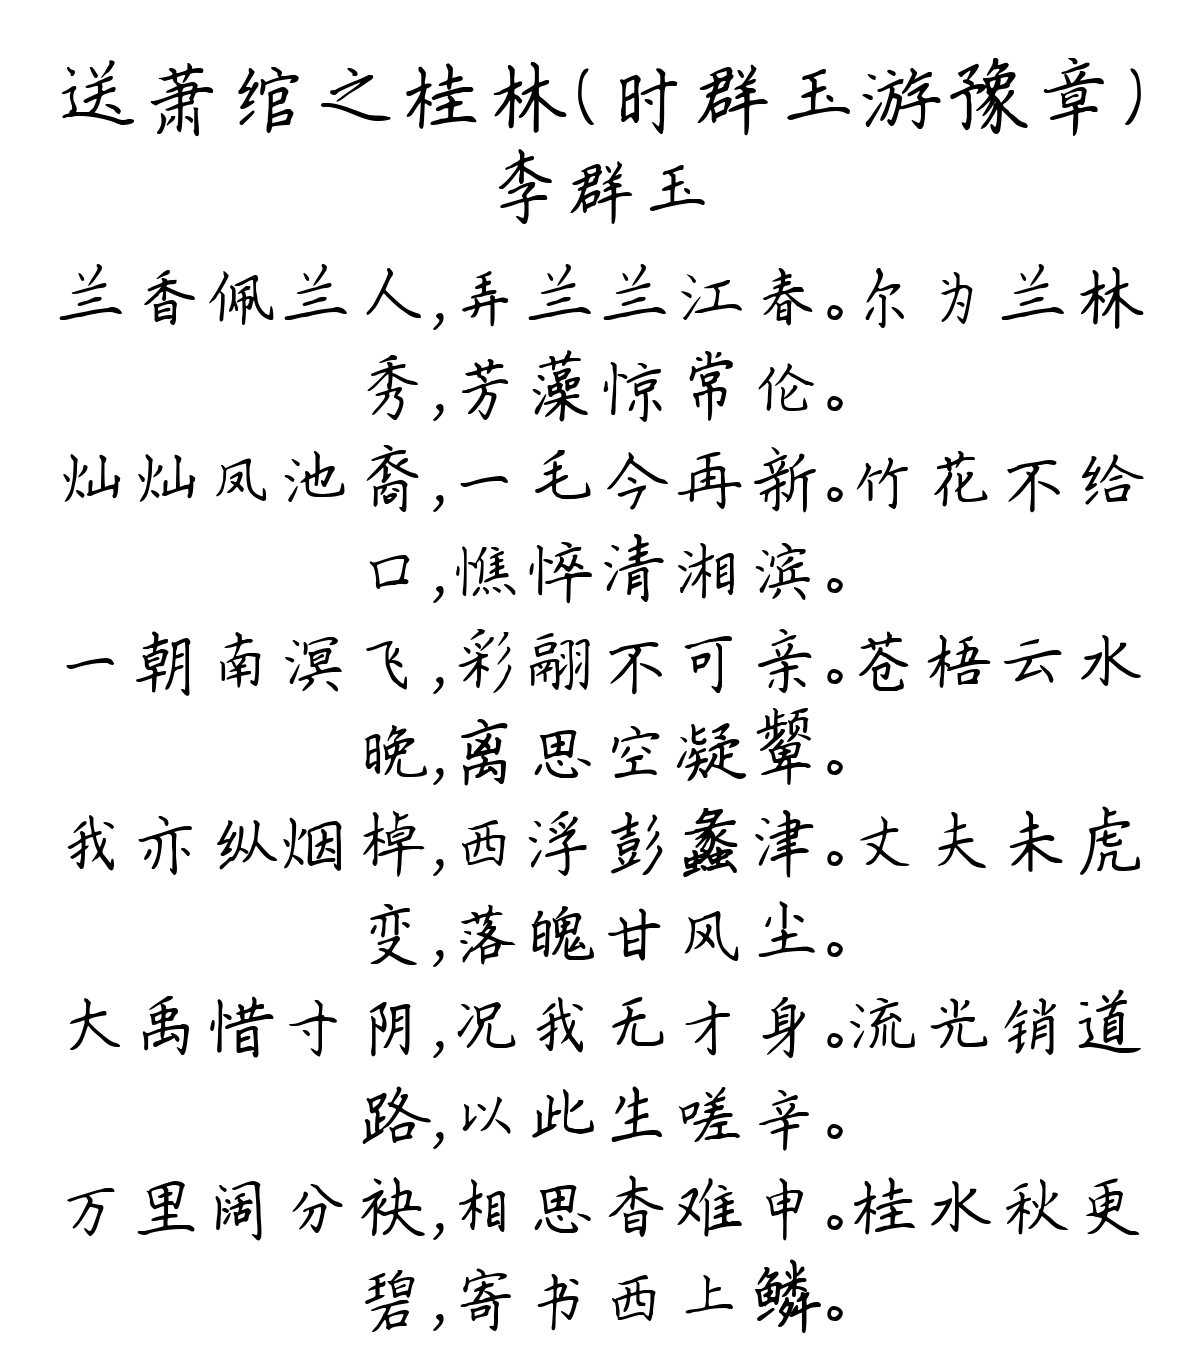 送萧绾之桂林(时群玉游豫章)
李群玉
兰香佩兰人,弄兰兰江春。尔为兰林
秀,芳藻惊常伦。
灿灿凤池裔,一毛今再新。竹花不给
口,憔悴清湘滨。
一朝南溟飞,彩翮不可亲。苍梧云水
晚,离思空凝颦。
我亦纵烟棹,西浮彭蠡津。丈夫未虎
变,落魄甘风尘。
大禹惜寸阴,况我无才身。流光销道
路,以此生嗟辛。
万里阔分袂,相思杳难申。桂水秋更
碧,寄书西上鳞。